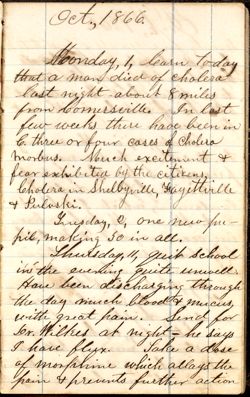 Oct, 1866.
Monday, 1, learn today
that a man died of cholera
last night about 8 miles
from Cornersville. In last
few weeks there have been in
C. three or four cases of Cholera
Morbus. Much excitement &
fear exhibited by the citizens,
Cholera in Shelbyville, Fayetteville
& Pulaski.
Tuesday, 2, one new pu-
pil, making 30 in all.
Thursday, 11, quit school
in the evening quite unwell.
Have been discharging through
the day much blood & mucus,
with great pain. Send for
Dr. Wilkes at night = he says
I have flux. Take a dose
of morphine which allays the
pain & prevents further action